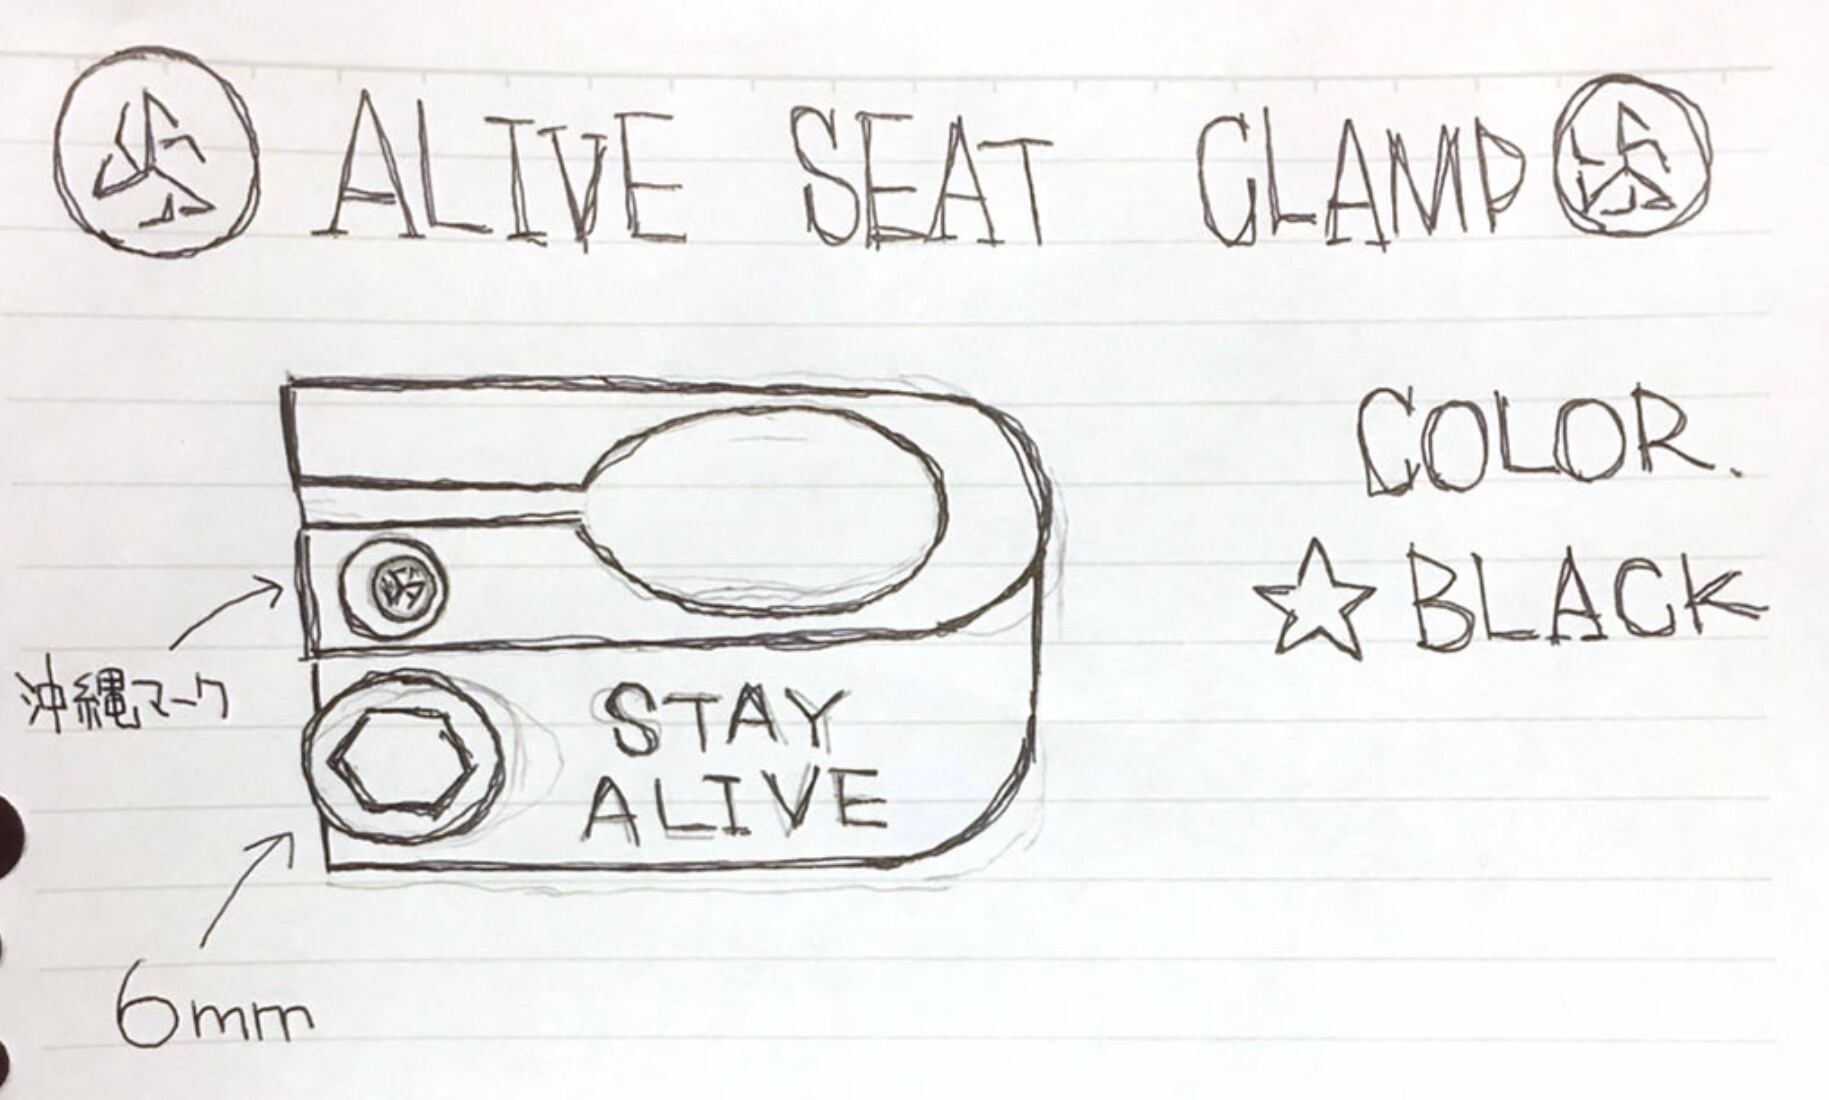 ALIVE SEAT CLAMP
COLOR.
☆BLACK
沖縄マーク
STAY
ALIVE
6mm